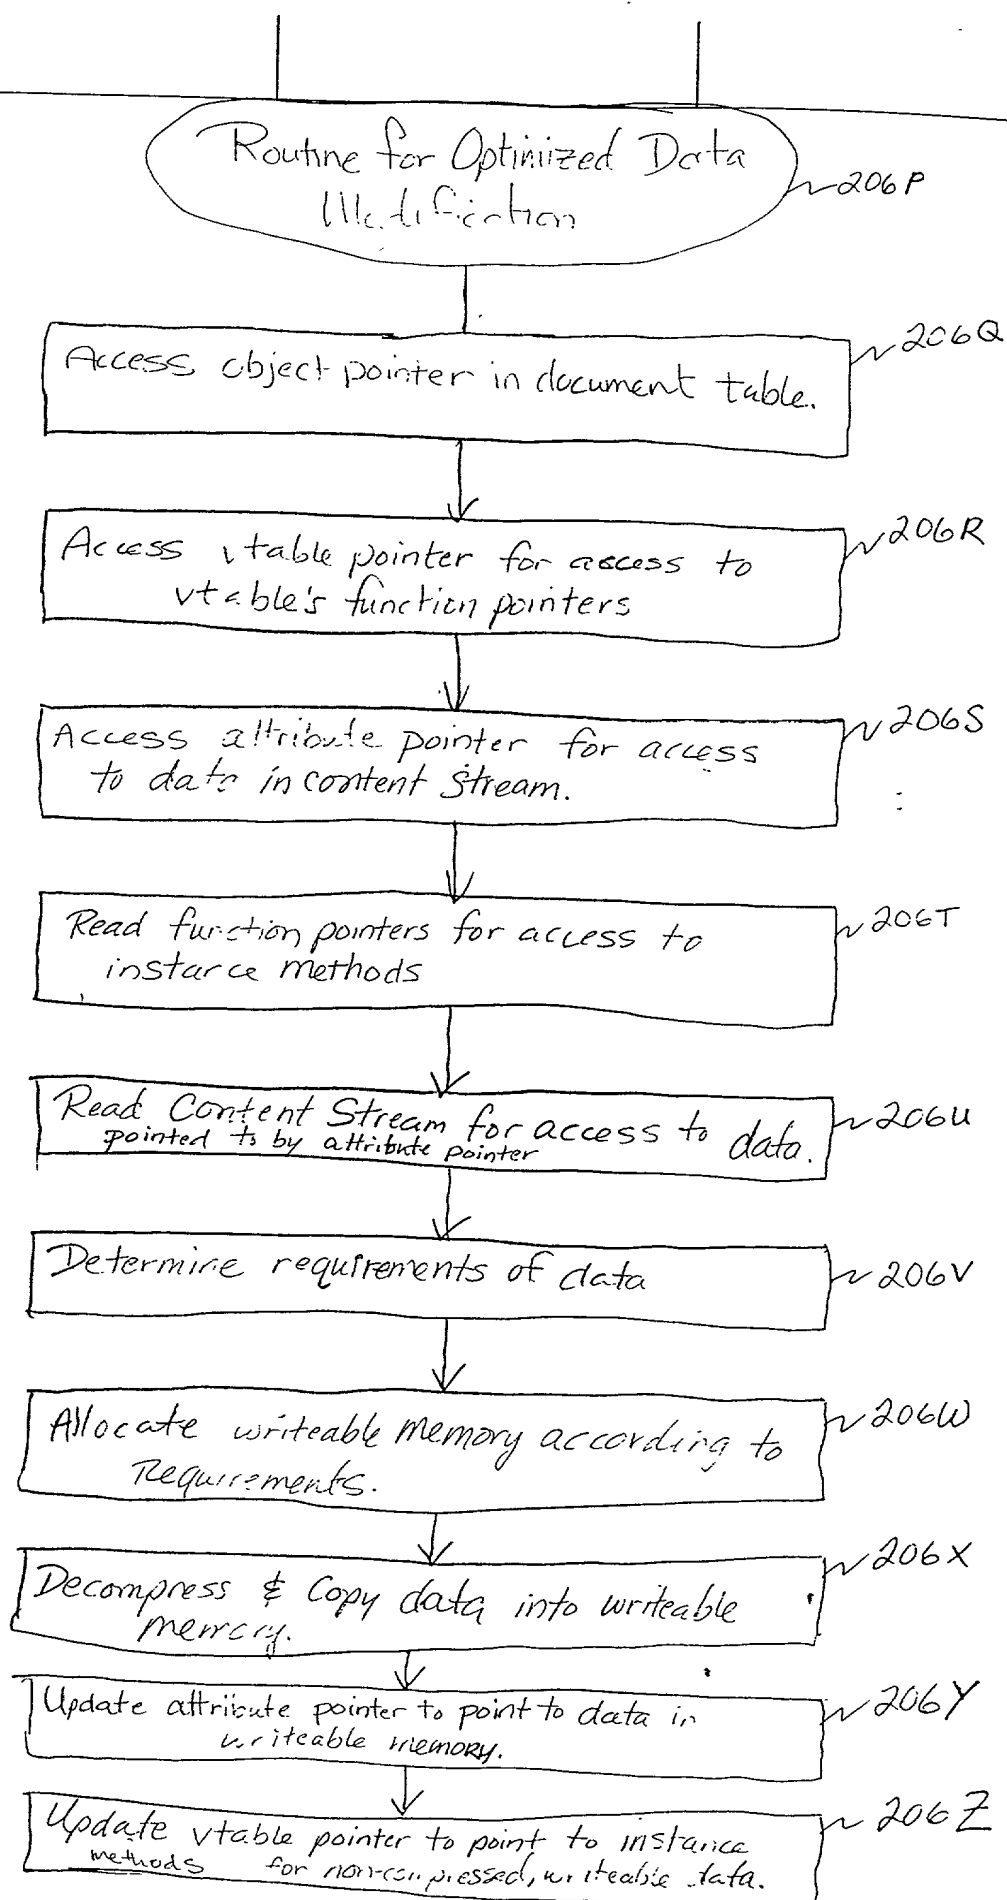 Routine for Optimized Data
Modification
206P
Access object pointer in document table.
206Q
Access vtable pointer for access to
vtable's function pointers
206R
Access attribute pointer for access
to data in content Stream.
206S
Read function pointers for access to
instance methods
206T
Read Content Stream for access to data.
pointed to by attribute pointer
206U
Determine requirements of data
206V
Allocate writeable memory according to
Requirements.
206W
Decompress & Copy data into writeable
memory.
206X
Update attribute pointer to point to data in
writeable memory.
206Y
Update vtable pointer to point to instance
methods for non-compressed, writeable data.
206Z